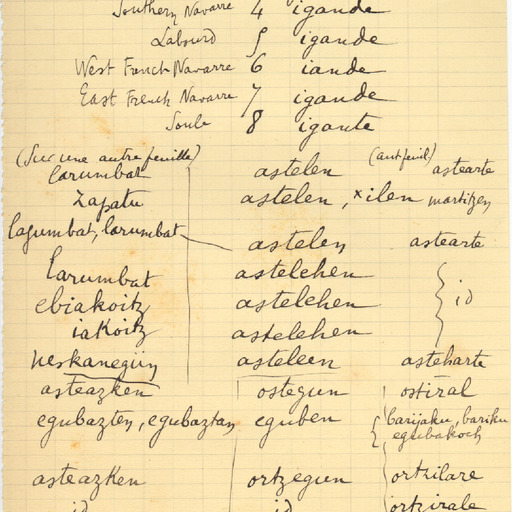 Southern Navarre 4 igande
Labourd 5 igande
West French Navarre 6 iande
East French Navarre 7 igande
Soule 8 igante
(Sur une autre feuille) (aut feuil)
larumbat astelen astearte
zapatu astelen, × ilen martitzen
lagumbat, larumbat astelen astearte
larumbat astelehen
ebiakoitz astelehen } id
iakoitz astelehen
neskanegün asteleen asteharte
asteazken ostegun ostiral
egubazten, egubaztan eguben { barijaku, bariku
egubakoch
asteazken ortzegun ortzilare
id id ortzirale